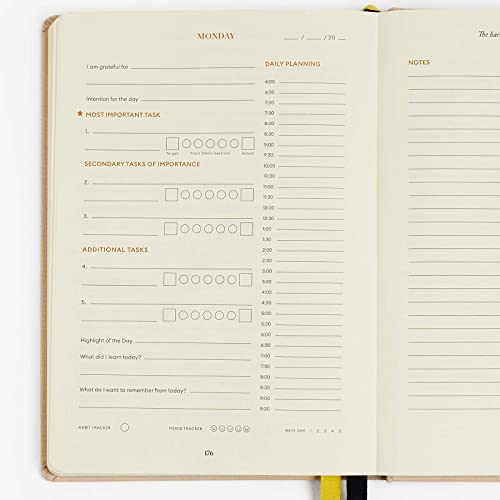 MONDAY
__ / __ / 20 __
I am grateful for
Intention for the day
★ MOST IMPORTANT TASK
1.
Target Actual
SECONDARY TASKS OF IMPORTANCE
2.
3.
ADDITIONAL TASKS
4.
5.
Highlight of the Day
What did I learn today?
What do I want to remember from today?
HABIT TRACKER
MOOD TRACKER
RATE DAY 1 2 3 4 5
176
DAILY PLANNING
6:00
6:30
7:00
7:30
8:00
8:30
9:00
9:30
10:00
10:30
11:00
11:30
12:00
12:30
1:00
1:30
2:00
2:30
3:00
3:30
4:00
4:30
5:00
5:30
6:00
6:30
7:00
7:30
8:00
8:30
9:00
9:30
The har
NOTES